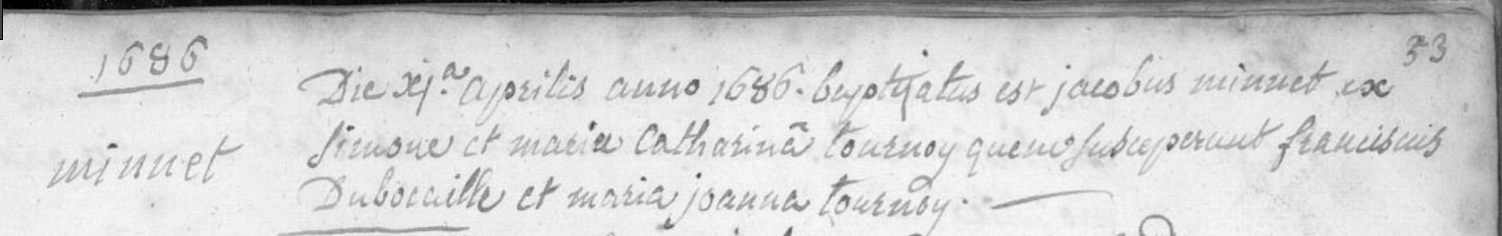 1686
53
Die xj.a aprilis anno 1686. baptizatus est jacobus minnet ex
simone et maria Catharinã tournoy quem susceperunt franciscus
minnet
Dubocaille et maria joanna tournoy.